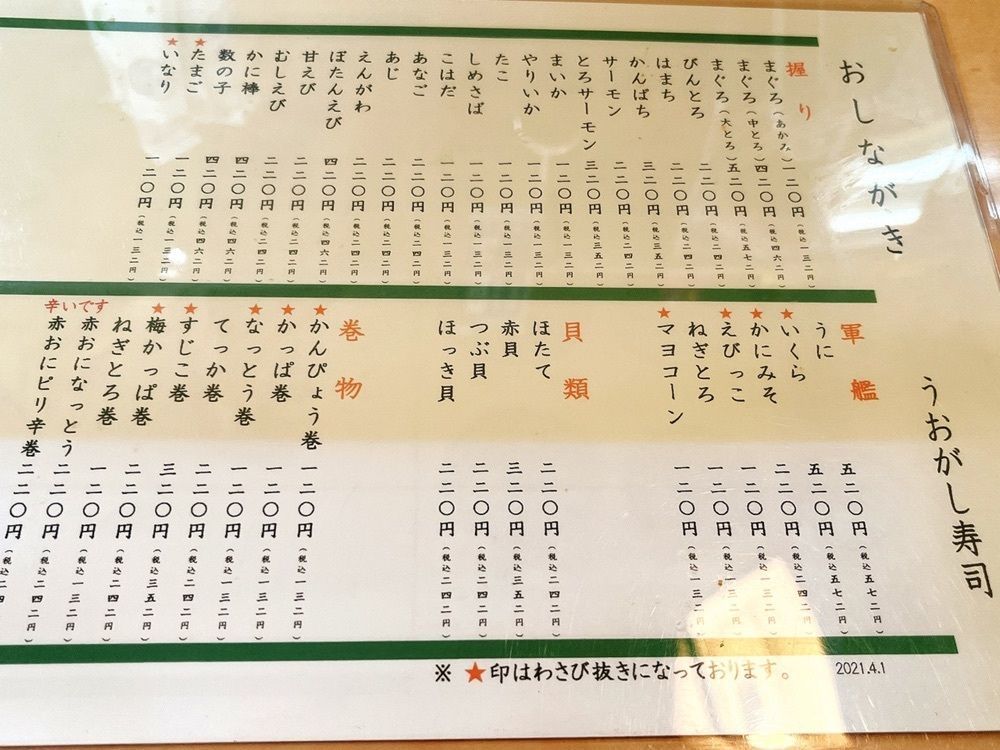 おしながき
うおがし寿司
握り
まぐろ（あかみ）一二〇円（税込一三二円）
まぐろ（中とろ）四二〇円（税込四六二円）
まぐろ（大とろ）五二〇円（税込五七二円）
びんとろ 二二〇円（税込二四二円）
はまち 二二〇円（税込二四二円）
かんぱち 三二〇円（税込三五二円）
サーモン 二二〇円（税込二四二円）
とろサーモン 三二〇円（税込三五二円）
まいか 一二〇円（税込一三二円）
やりいか 一二〇円（税込一三二円）
たこ 一二〇円（税込一三二円）
しめさば 一二〇円（税込一三二円）
こはだ 一二〇円（税込一三二円）
あなご 二二〇円（税込二四二円）
あじ 二二〇円（税込二四二円）
えんがわ 二二〇円（税込二四二円）
ぼたんえび 四二〇円（税込四六二円）
甘えび 二二〇円（税込二四二円）
むしえび 二二〇円（税込二四二円）
かに棒 四二〇円（税込四六二円）
数の子 四二〇円（税込四六二円）
★たまご 一二〇円（税込一三二円）
★いなり 一二〇円（税込一三二円）
軍艦
うに 五二〇円（税込五七二円）
★いくら 五二〇円（税込五七二円）
★かにみそ 二二〇円（税込二四二円）
★えびっこ 一二〇円（税込一三二円）
ねぎとろ 一二〇円（税込一三二円）
★マヨコーン 一二〇円（税込一三二円）
貝類
ほたて 二二〇円（税込二四二円）
赤貝 三二〇円（税込三五二円）
つぶ貝 二二〇円（税込二四二円）
ほっき貝 二二〇円（税込二四二円）
巻物
★かんぴょう巻 一二〇円（税込一三二円）
★かっぱ巻 一二〇円（税込一三二円）
★なっとう巻 一二〇円（税込一三二円）
てっか巻 二二〇円（税込二四二円）
★すじこ巻 三二〇円（税込三五二円）
★梅かっぱ巻 一二〇円（税込一三二円）
ねぎとろ巻 一二〇円（税込一三二円）
辛いです
赤おになっとう 二二〇円（税込二四二円）
赤おにピリ辛巻 二二〇円（税込二四
※ ★印はわさび抜きになっております。
2021.4.1